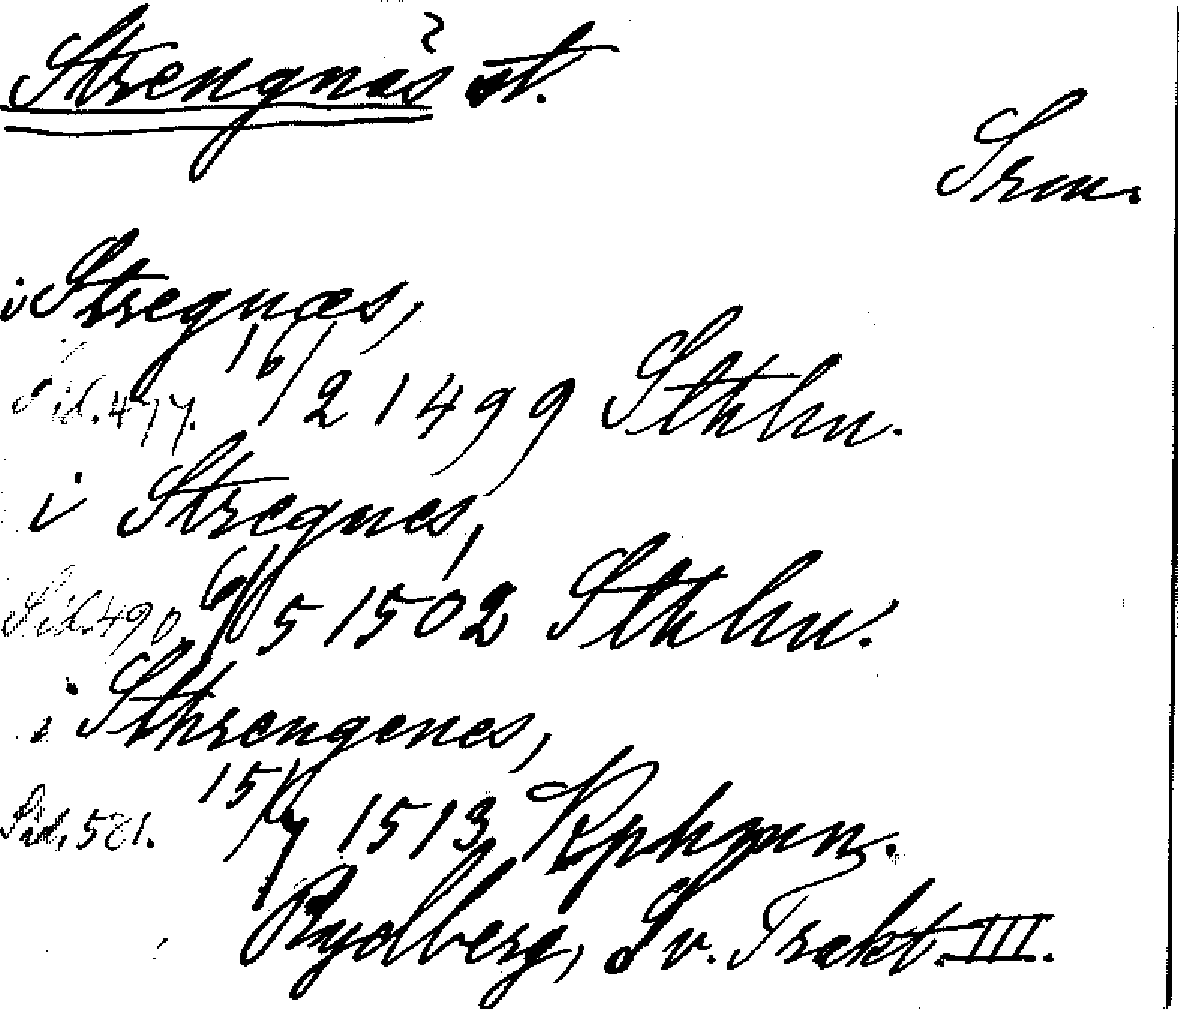 Strengnäs st.
Srm.
i Stregnæs,
Sid. 477. 16/2 1499 Sthlm.
i Stregnes,
Sid. 490. 6/5 1502 Sthlm.
i Sthrengenes,
Sid. 581. 15/7 1513 Kphmn.
Rydberg, Sv. Trakt. III.